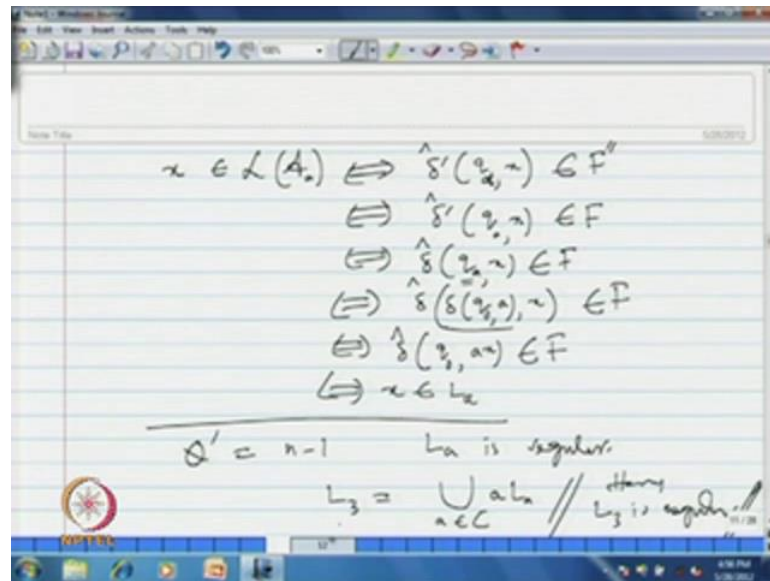 Note1 - Windows Journal
File Edit View Insert Actions Tools Help
100%
Note Title
5/28/2012
x ∈ L(A_a) ⇔ δ̂'(q_a, x) ∈ F''
⇔ δ̂'(q_a, x) ∈ F
⇔ δ̂(q_a, x) ∈ F
⇔ δ̂(δ(q_0, a), x) ∈ F
⇔ δ̂(q_0, ax) ∈ F
⇔ x ∈ L_a
Q' = n-1 L_a is regular.
L_3 = ⋃_{a ∈ C} a L_a // Hence
L_3 is regular //
NPTEL
11 / 28
4:56 PM
5/28/2012